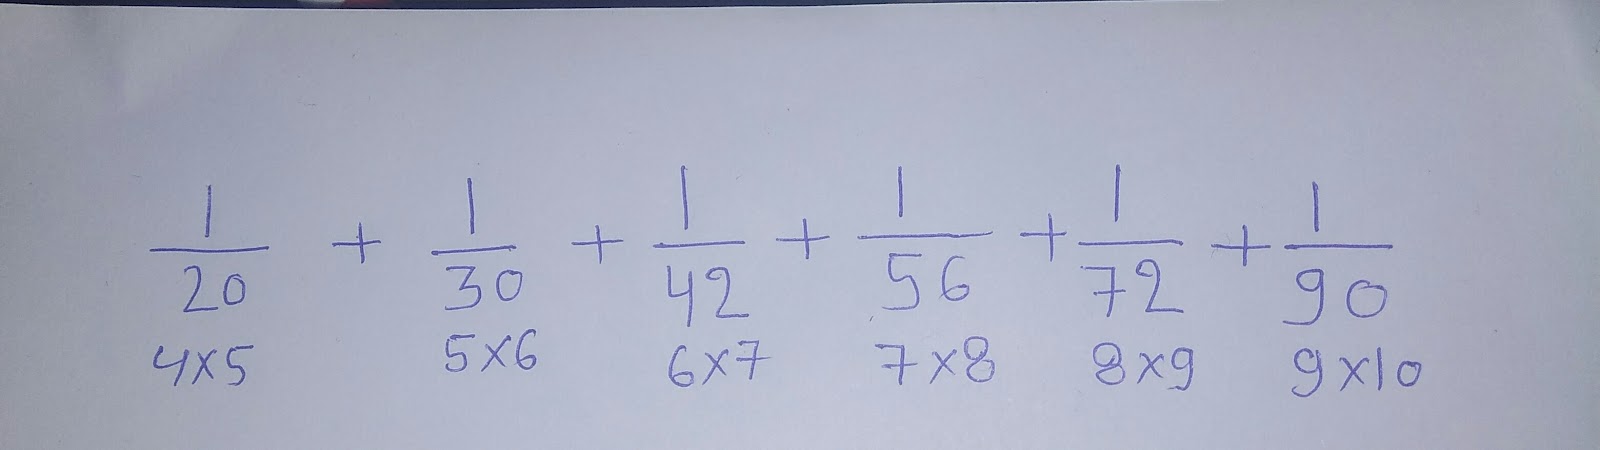 1/20 + 1/30 + 1/42 + 1/56 + 1/72 + 1/90
4x5 5x6 6x7 7x8 8x9 9x10